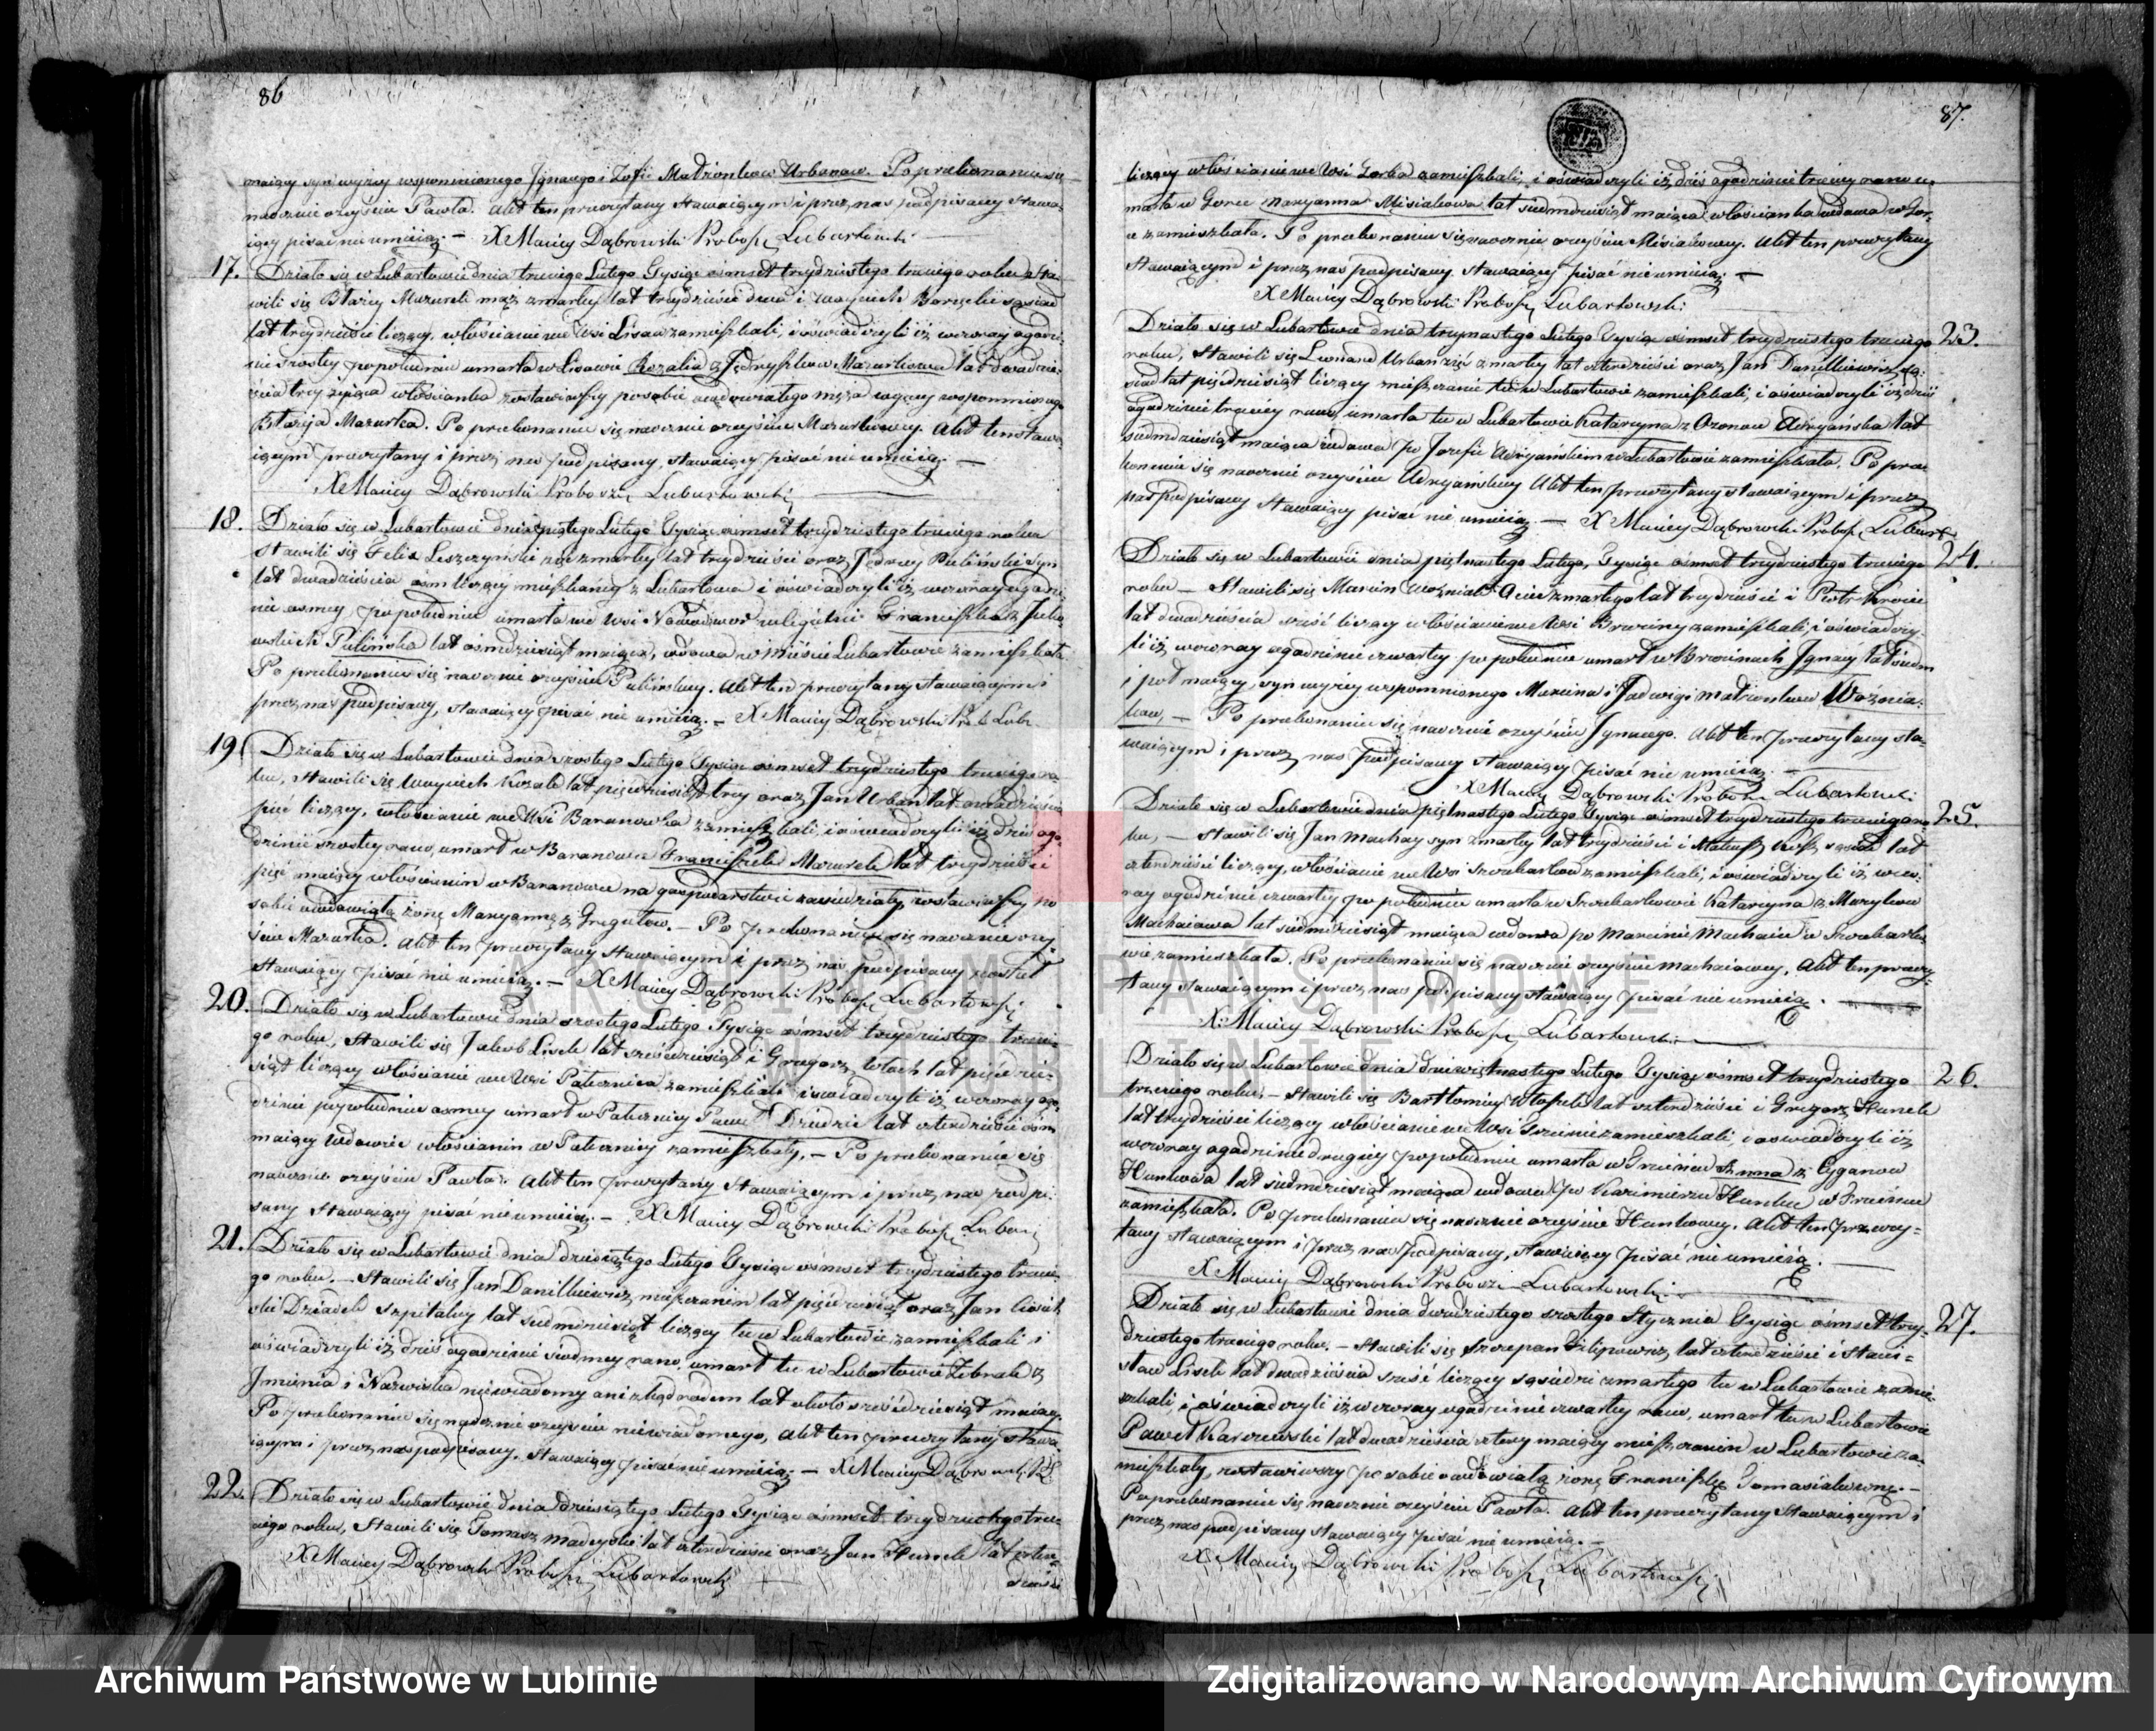 86
maiący syn wyżey wspomnionego Ignacego i Zofii Małżonków Urbanów. Po przekonaniu się
naocznie o zeyściu Pawła. Akt ten przeczytany Stawaiącym i przez nas podpisany Stawa-
iący pisać nie umieią. — X Maciey Dąbrowski Probosz Lubartowski
17. Działo się w Lubartowie dnia trzeciego Lutego Tysiąc ośmset trzydziestego trzeciego roku Sta-
wili się Błażey Mazurek mąż zmarłey lat trzydzieści dwa i Woyciech sąsiad
lat trzydzieści liczący, włościanie we Wsi Lisowie zamieszkali, i oświadczyli iż wczoray o godzi-
nie szóstey popołudniu umarła w Lisowie Rozalia z Jędryszków Mazurkowa lat dwadzie-
ścia trzy żyiąca włościanka zostawiwszy po sobie owdowiałego męża wyżey wspomnionego
Błażeja Mazurka. Po przekonaniu się naocznie o zeyściu Mazurkowey. Akt ten Stawa-
iącym przeczytany i przez nas podpisany, stawaiący pisać nie umieią. —
X Maciey Dąbrowski Proboszcz Lubartowski
18. Działo się w Lubartowie dnia piątego Lutego Tysiąc ośmset trzydziestego trzeciego roku
Stawili się Felix Leszczyński zmarłey lat trzydzieści oraz Jędrzey Puliński syn
lat dwadzieścia osm liczący mieszkańcy z Lubartowa i oświadczyli iż wczoray o godzi-
nie osmey po południu umarła we Wsi Franciszka z
Pulińska lat ośmdziesiąt maiąca, wdowa w mieście Lubartowie zamieszkała
Po przekonaniu się naocznie o zeyściu Pulińskiey. Akt ten przeczytany Stawaiącym i
przez nas podpisany, stawaiący pisać nie umieią. — X Maciey Dąbrowski Prob. Lub.
19. Działo się w Lubartowie dnia szóstego Lutego Tysiąc ośmset trzydziestego trzeciego ro-
ku, Stawili się Woyciech Kozak lat pięćdziesiąt trzy oraz Jan Urban lat dwadzieścia
pięć liczący, włościanie we Wsi Baranówka zamieszkali, i oświadczyli iż dziś o go-
dzinie szóstey rano, umarł w Baranówce Franciszek Mazurek lat trzydzieści
pięć maiący włościanin w Baranówce na gospodarstwie zasiedziały, zostawiwszy po
sobie owdowiałą żonę Maryannę z Gregułów. — Po przekonaniu się naocznie o zey-
ściu Mazurka. Akt ten przeczytany Stawaiącym i przez nas podpisany został
Stawaiący pisać nie umieią. — X Maciey Dąbrowski Probosz Lubartowski
20. Działo się w Lubartowie dnia szóstego Lutego Tysiąc ośmset trzydziestego trzecie-
go roku, Stawili się Jakób Lisek lat sześćdziesiąt i Grzegorz Włoch lat pięćdzie-
siąt liczący włościanie we Wsi Patecznica zamieszkali i oświadczyli iż wczoray o go-
dzinie popołudniu osmey umarł w Patecznicy Paweł Dziedzic lat czterdzieści ośm
maiący Wdowiec włościanin w Patecznicy zamieszkały. — Po przekonaniu się
naocznie o zeyściu Pawła. Akt ten przeczytany Stawaiącym i przez nas podpi-
sany Stawaiący pisać nie umieią. — X Maciey Dąbrowski Probosz Lubar.
21. Działo się w Lubartowie dnia dziesiątego Lutego Tysiąc ośmset trzydziestego trzecie-
go roku. — Stawili się Jan Danilkiewicz mieszczanin lat pięćdziesiąt oraz Jan
Dziadek Szpitalny lat siedmdziesiąt liczący tu w Lubartowie zamieszkali i
oświadczyli iż dziś o godzinie siódmey rano, umarł tu w Lubartowie Żebrak z
Imienia i Nazwiska niewiadomy ani zkąd rodem lat około sześćdziesiąt maiący.
Po przekonaniu się naocznie o zeyściu niewiadomego, Akt ten przeczytany Stawa-
iącym i przez nas podpisany. Stawaiący pisać nie umieią. — X Maciey Dąbrowski P. L.
22. Działo się w Lubartowie dnia dziesiątego Lutego Tysiąc ośmset trzydziestego trze-
ciego roku, Stawili się Tomasz Madeyski lat czterdzieści oraz Jan Hunek lat czter-
dzieści
X Maciey Dąbrowski Probosz Lubartowski
87.
liczący włościanie we Wsi Gorka zamieszkali, i oświadczyli iż dziś o godzinie trzeciey rano u-
marła w Gorce Maryanna Misiakowa lat siedmdziesiąt maiąca włościanka wdowa w Gor-
ce zamieszkała. Po przekonaniu się naocznie o zeyściu Misiakowey. Akt ten przeczytany
Stawaiącym i przez nas podpisany. Stawaiący pisać nie umieią. —
X Maciey Dąbrowski Probosz Lubartowski
23. Działo się w Lubartowie dnia trzynastego Lutego Tysiąc ośmset trzydziestego trzeciego
roku, Stawili się Leonard Urban zięć zmarłey lat czterdzieści oraz Jan Danilkiewicz są-
siad lat pięćdziesiąt liczący mieszczanie tu w Lubartowie zamieszkali, i oświadczyli iż dziś
o godzinie trzeciey rano, umarła tu w Lubartowie Katarzyna z Ozonow Adryańska lat
siedmdziesiąt maiąca wdowa po Jozefie Adryańskim w Lubartowie zamieszkała. Po prze-
konaniu się naocznie o zeyściu Adryańskiey Akt ten przeczytany stawaiącym i przez
nas podpisany Stawaiący pisać nie umieią. — X Maciey Dąbrowski Probosz Lubart.
24. Działo się w Lubartowie dnia piętnastego Lutego, Tysiąc ośmset trzydziestego trzeciego
roku — Stawili się Marcin Woźniak Ociec zmarłego lat trzydzieści i Piotr
lat dwadzieścia sześć liczący włościanie we Wsi Brzeziny zamieszkali, i oświadczy-
li iż wczoray o godzinie czwartey po południu umarł w Brzezinach Ignacy lat siedm
i pół maiący, syn wyżey wspomnionego Marcina i Jadwigi małżonków Woźnia-
ków. — Po przekonaniu się naocznie o zeyściu Ignacego. Akt ten przeczytany sta-
waiącym i przez nas podpisany stawaiący pisać nie umieią. —
X Maciey Dąbrowski Probosz Lubartowski
25. Działo się w Lubartowie dnia piętnastego Lutego Tysiąc ośmset trzydziestego trzeciego ro-
ku, — Stawili się Jan Machay syn zmarłey lat trzydzieści i Mateusz sąsiad lat
czterdzieści liczący, włościanie we Wsi Szczekarków zamieszkali, i oświadczyli iż wczo-
ray o godzinie czwartey po południu umarła w Szczekarkowie Katarzyna z
Machaiowa lat siedmdziesiąt maiąca wdowa po Marcinie Machaiu w Szczekarko-
wie zamieszkała. Po przekonaniu się naocznie o zeyściu Machaiowey, Akt ten przeczy-
tany stawaiącym i przez nas podpisany stawaiący pisać nie umieią. —
X. Maciey Dąbrowski Probosz Lubartowski
26. Działo się w Lubartowie dnia dziewiętnastego Lutego Tysiąc ośmset trzydziestego
trzeciego roku, — Stawili się Bartłomiey Włosek lat czterdzieści i Grzegorz Hunek
lat trzydzieści liczący włościanie we Wsi zamieszkali, i oświadczyli iż
wczoray o godzinie drugiey popołudniu umarła w Anna z Cyganow
Hunkowa lat siedmdziesiąt maiąca wdowa po Kazimierzu Hunku w
zamieszkała. Po przekonaniu się naocznie o zeyściu Hunkowey. Akt ten przeczy-
tany stawaiącym i przez nas podpisany, stawaiący pisać nie umieią. —
X Maciey Dąbrowski Proboszcz Lubartowski
27. Działo się w Lubartowie dnia dwudziestego szóstego Stycznia Tysiąc ośmset trzy-
dziestego trzeciego roku. — Stawili się Szczepan Filipowicz lat czterdzieści i Stani-
sław Lisek lat dwadzieścia sześć liczący sąsiedzi zmarłego tu w Lubartowie zamie-
szkali, i oświadczyli iż wczoray o godzinie czwartey rano, umarł tu w Lubartowie
Paweł Karczewski lat dwadzieścia cztery maiący mieszczanin w Lubartowie za-
mieszkały, zostawiwszy po sobie owdowiałą żonę Franciszkę Tomasiakównę. —
Po przekonaniu się naocznie o zeyściu Pawła. Akt ten przeczytany Stawaiącym i
przez nas podpisany stawaiący pisać nie umieią. —
X Maciey Dąbrowski Probosz Lubartowski
ARCHIWUM PAŃSTWOWE
W LUBLINIE
Archiwum Państwowe w Lublinie
Zdigitalizowano w Narodowym Archiwum Cyfrowym